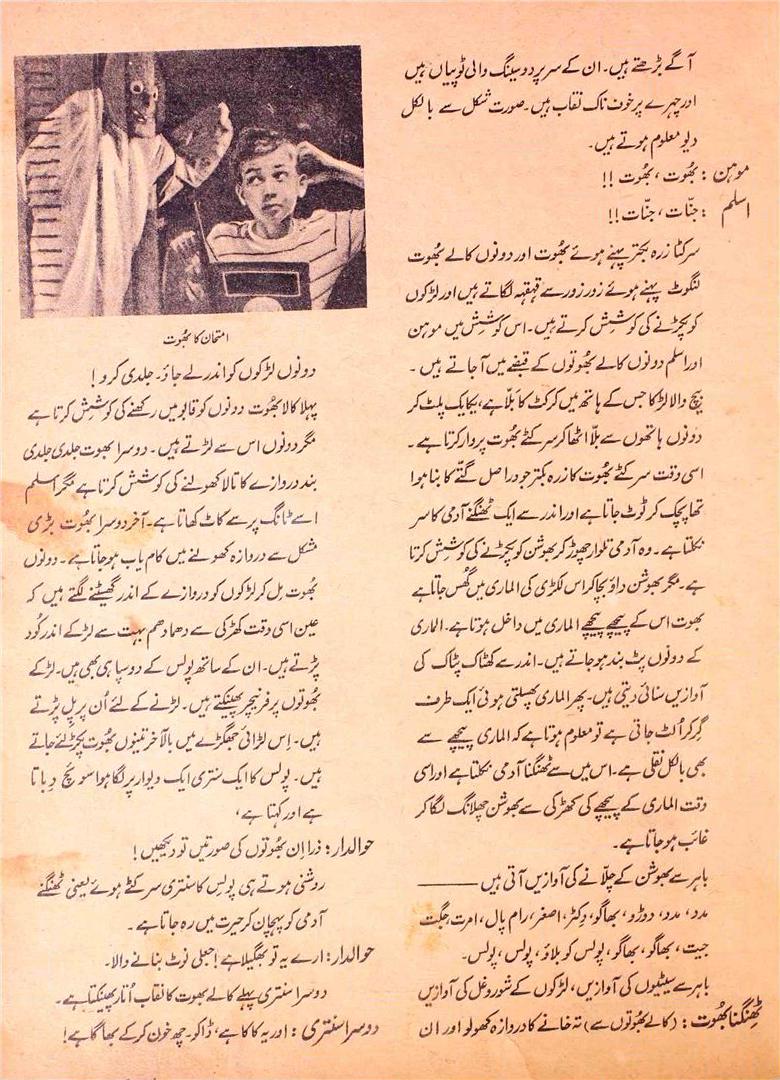 آگے بڑھتے ہیں۔ ان کے سر پر دو سینگ والی ٹوپیاں ہیں
اور چہرے پر خوف ناک نقاب ہیں۔ صورت شکل سے بالکل
دیو معلوم ہوتے ہیں۔
موہن : بھُوت ، بھُوت !!
اسلم : جنّات ، جنّات !!
سر کٹا زرہ بکتر پہنے ہوئے بھُوت اور دونوں کالے بھُوت
لنگوٹ پہنے ہوئے زور زور سے قہقہہ لگاتے ہیں اور لڑکوں
کو پکڑنے کی کوشش کرتے ہیں۔ اس کوشش میں موہن
اور اسلم دونوں کالے بھُوتوں کے قبضے میں آجاتے ہیں۔
بیچ والا لڑکا جس کے ہاتھ میں کرکٹ کا بلّا ہے، یکایک پلٹ کر
دونوں ہاتھوں سے بلّا اٹھا کر سر کٹے بھُوت پر وار کرتا ہے۔
اسی وقت سر کٹے بھُوت کا زرہ بکتر جو دراصل گتّے کا بنا ہوا
تھا پچک کر ٹوٹ جاتا ہے اور اندر سے ایک ٹھنگنے آدمی کا سر
نکلتا ہے۔ وہ آدمی تلوار چھوڑ کر بھوشن کو پکڑنے کی کوشش کرتا
ہے۔ مگر بھوشن داؤ بچا کر اس لکڑی کی الماری میں گھُس جاتا ہے
بھوت اس کے پیچھے پیچھے الماری میں داخل ہوتا ہے۔ الماری
کے دونوں پٹ بند ہو جاتے ہیں۔ اندر سے کھٹاک پٹاک کی
آوازیں سنائی دیتی ہیں۔ پھر الماری پھسلتی ہوئی ایک طرف
گر کر اُلٹ جاتی ہے تو معلوم ہوتا ہے کہ الماری پیچھے سے
بھی بالکل نقلی ہے۔ اس میں سے ٹھنگنا آدمی نکلتا ہے اور اسی
وقت الماری کے پیچھے کی کھڑکی سے بھوشن چھلانگ لگا کر
غائب ہو جاتا ہے۔
باہر سے بھوشن کے چلّانے کی آوازیں آتی ہیں ———
مدد، مدد، دوڑو، بھاگو، وکٹر، اصغر، رام پال، امرت، جگت
جیت، بھاگو، بھاگو، پولس کو بلاؤ، پولس، پولس۔
باہر سے سیٹیوں کی آوازیں، لڑکوں کے شور و غل کی آوازیں
ٹھِنگنا بھُوت : (کالے بھُوتوں سے) تہ خانے کا دروازہ کھولو اور ان
امتحان کا بھُوت
دونوں لڑکوں کو اندر لے جاؤ۔ جلدی کرو !
پہلا کالا بھُوت دونوں کو قابو میں رکھنے کی کوشش کرتا ہے
مگر دونوں اس سے لڑتے ہیں۔ دوسرا بھوت جلدی جلدی
بند دروازے کا تالا کھولنے کی کوشش کرتا ہے مگر اسلم
اسے ٹانگ پر سے کاٹ کھاتا ہے۔ آخر دوسرا بھُوت بڑی
مشکل سے دروازہ کھولنے میں کام یاب ہو جاتا ہے۔ دونوں
بھُوت مل کر لڑکوں کو دروازے کے اندر گھسیٹنے لگتے ہیں کہ
عین اسی وقت کھڑکی سے دھما دھم بہت سے لڑکے اندر کُود
پڑتے ہیں۔ ان کے ساتھ پولس کے دو سپاہی بھی ہیں۔ لڑکے
بھُوتوں پر فرنیچر پھینکتے ہیں۔ لڑنے کے لئے اُن پر پِل پڑتے
ہیں۔ اِس لڑائی جھگڑے میں بالآخر تینوں بھُوت پکڑ لئے جاتے
ہیں۔ پولس کا ایک سنتری ایک دیوار پر لگا ہوا سوئچ دباتا
ہے اور کہتا ہے،
حوالدار : ذرا اِن بھُوتوں کی صورتیں تو دیکھیں !
روشنی ہوتے ہی پولس کا سنتری سر کٹے ہوئے یعنی ٹھنگنے
آدمی کو پہچان کر حیرت میں رہ جاتا ہے۔
حوالدار : ارے یہ تو بھگیلا ہے! جعلی نوٹ بنانے والا۔
دوسرا سنتری پہلے کالے بھوت کا نقاب اُتار پھینکتا ہے۔
دوسرا سنتری : اور یہ کاکا ہے، ڈاکو۔ چھ خون کر کے بھاگا ہے !